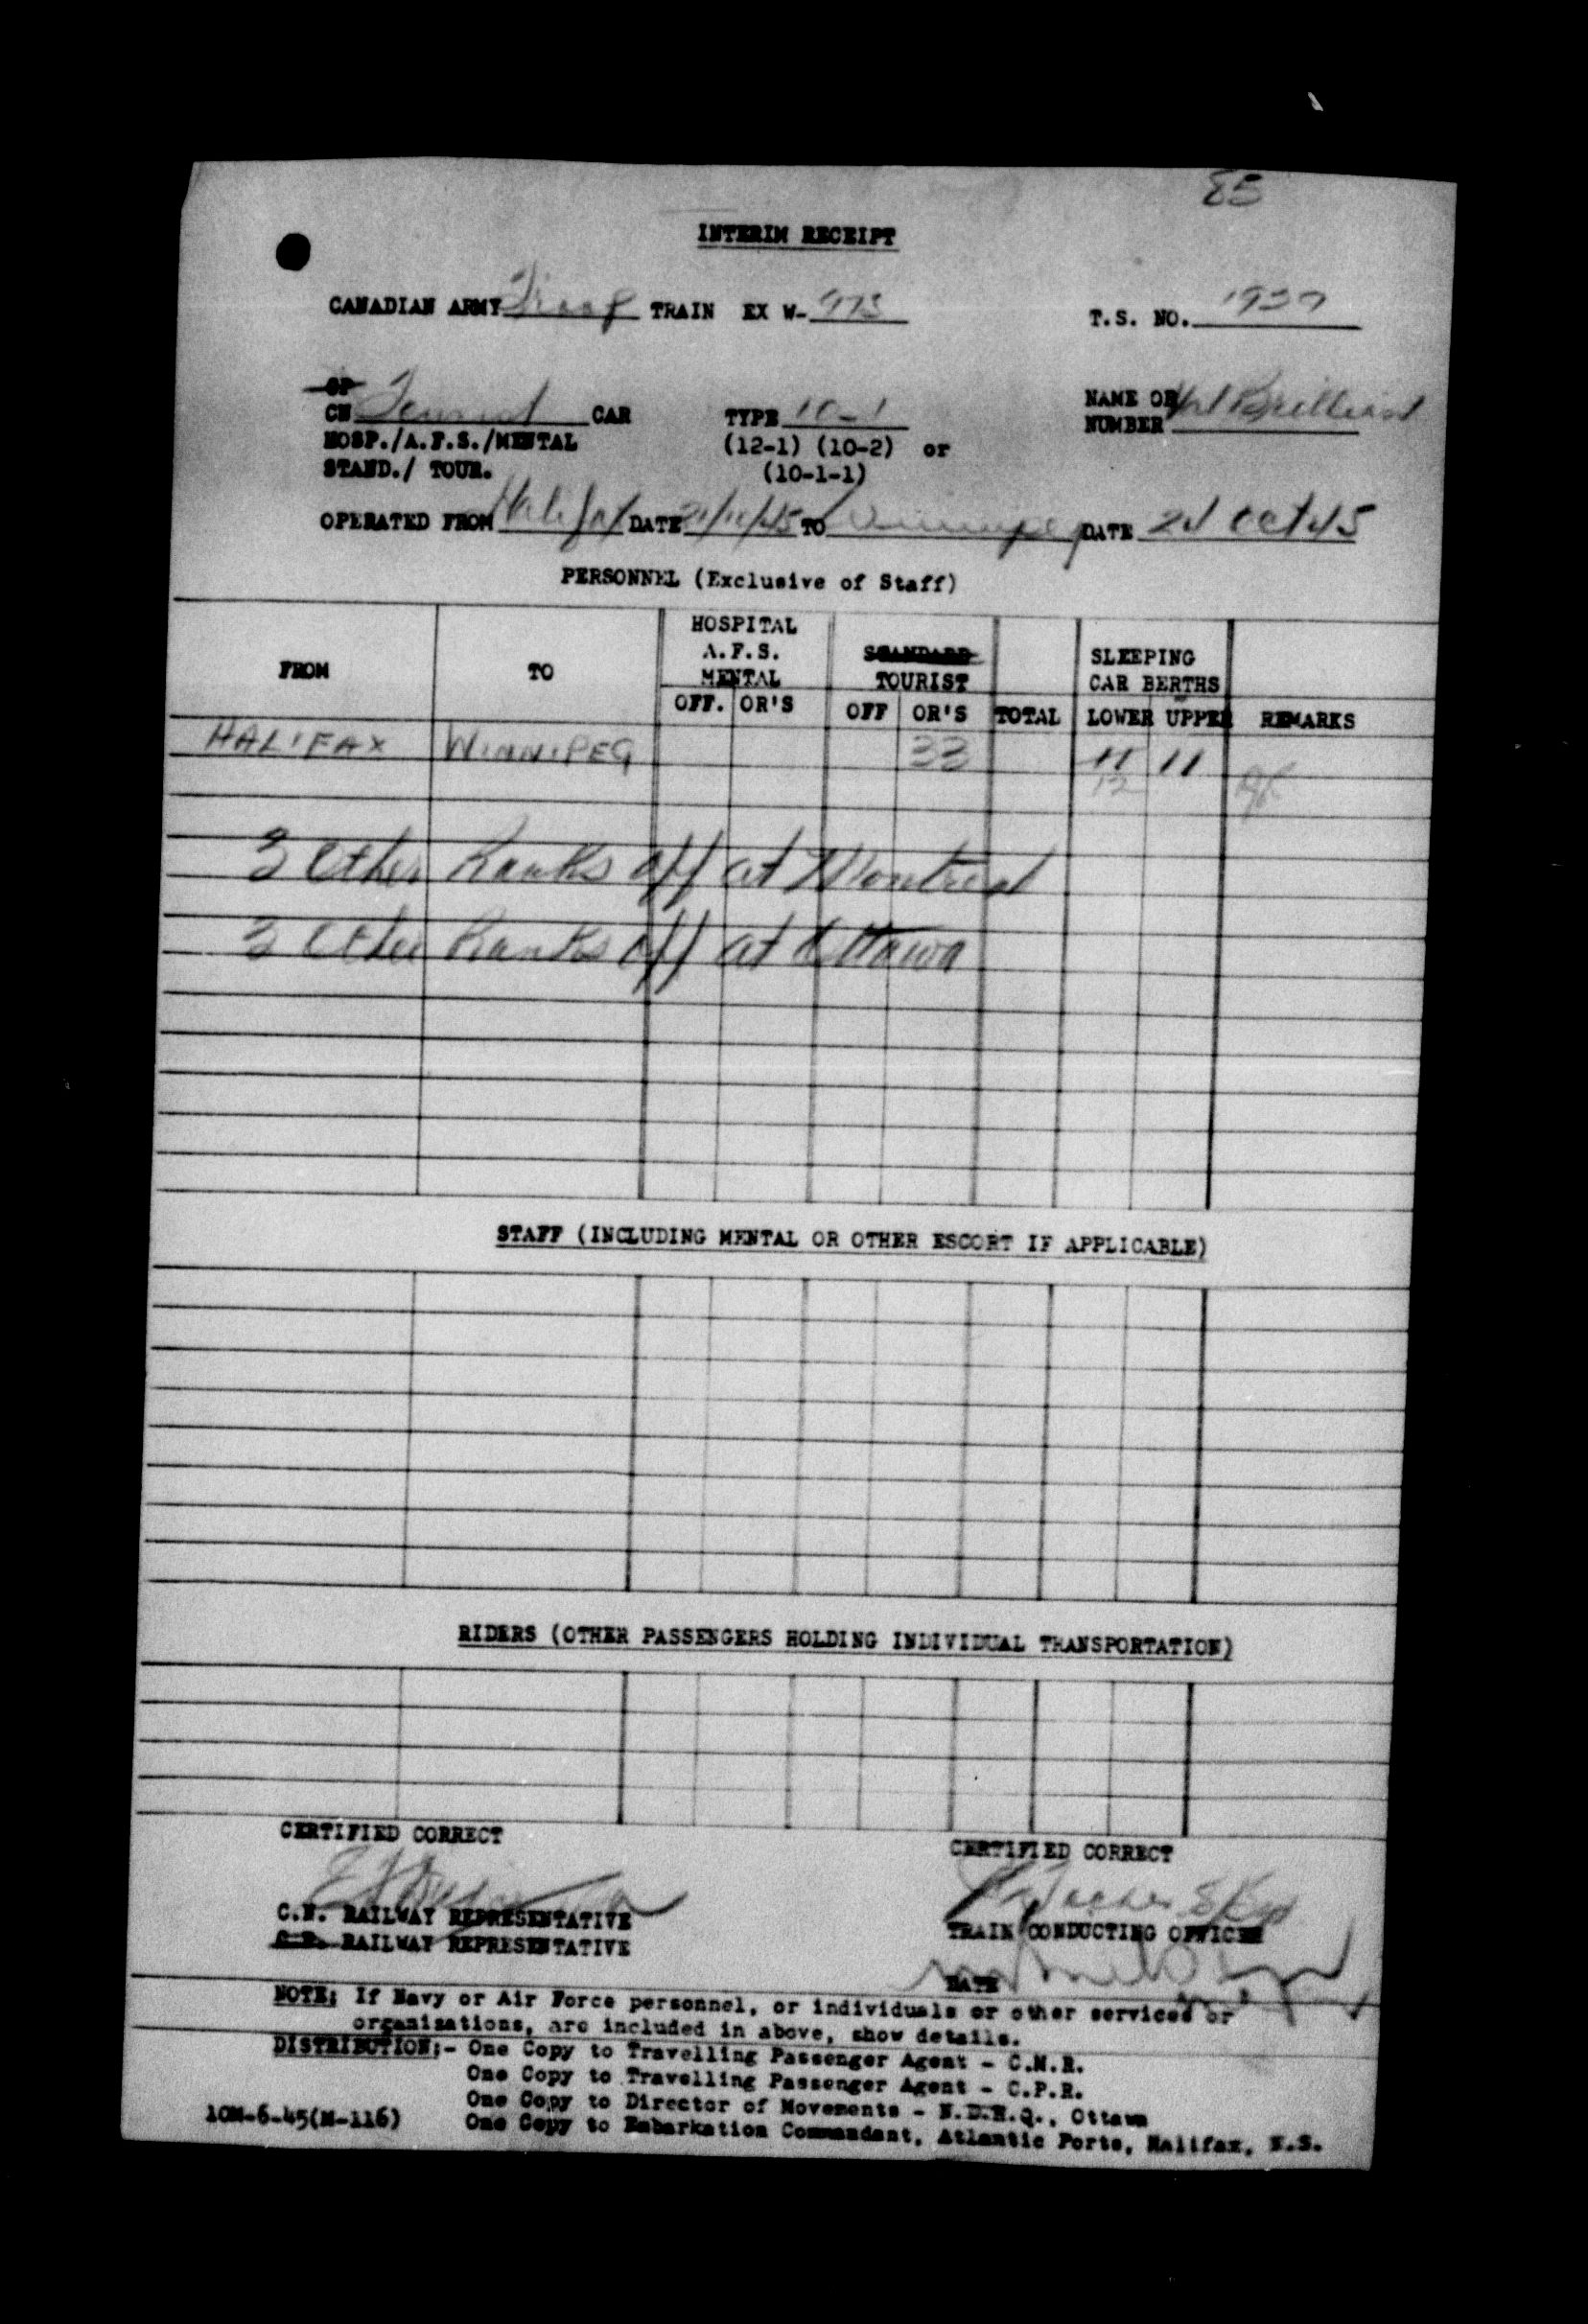 85
INTERIM RECEIPT
CANADIAN ARMY Troop TRAIN EX W- 973 T.S. NO.
CP
CN Tourist CAR TYPE 10-1 NAME OR
NUMBER
HOSP./A.F.S./MENTAL (12-1) (10-2) or
STAND./ TOUR. (10-1-1)
OPERATED FROM Halifax DATE TO Winnipeg DATE 24 Oct 45
PERSONNEL (Exclusive of Staff)
FROM TO HOSPITAL A.F.S. MENTAL STANDARD TOURIST SLEEPING CAR BERTHS
OFF. OR'S OFF OR'S TOTAL LOWER UPPER REMARKS
HALIFAX WINNIPEG 33 11 11
12
3 Other Ranks off at Montreal
3 Other Ranks off at Ottawa
STAFF (INCLUDING MENTAL OR OTHER ESCORT IF APPLICABLE)
RIDERS (OTHER PASSENGERS HOLDING INDIVIDUAL TRANSPORTATION)
CERTIFIED CORRECT CERTIFIED CORRECT
C.N. RAILWAY REPRESENTATIVE TRAIN CONDUCTING OFFICER
C.P. RAILWAY REPRESENTATIVE
DATE
NOTE: If Navy or Air Force personnel, or individuals or other services or
organisations, are included in above, show details.
DISTRIBUTION:- One Copy to Travelling Passenger Agent - C.N.R.
One Copy to Travelling Passenger Agent - C.P.R.
One Copy to Director of Movements - N.D.H.Q., Ottawa
10M-6-45(M-116) One Copy to Embarkation Commandant, Atlantic Ports, Halifax, N.S.